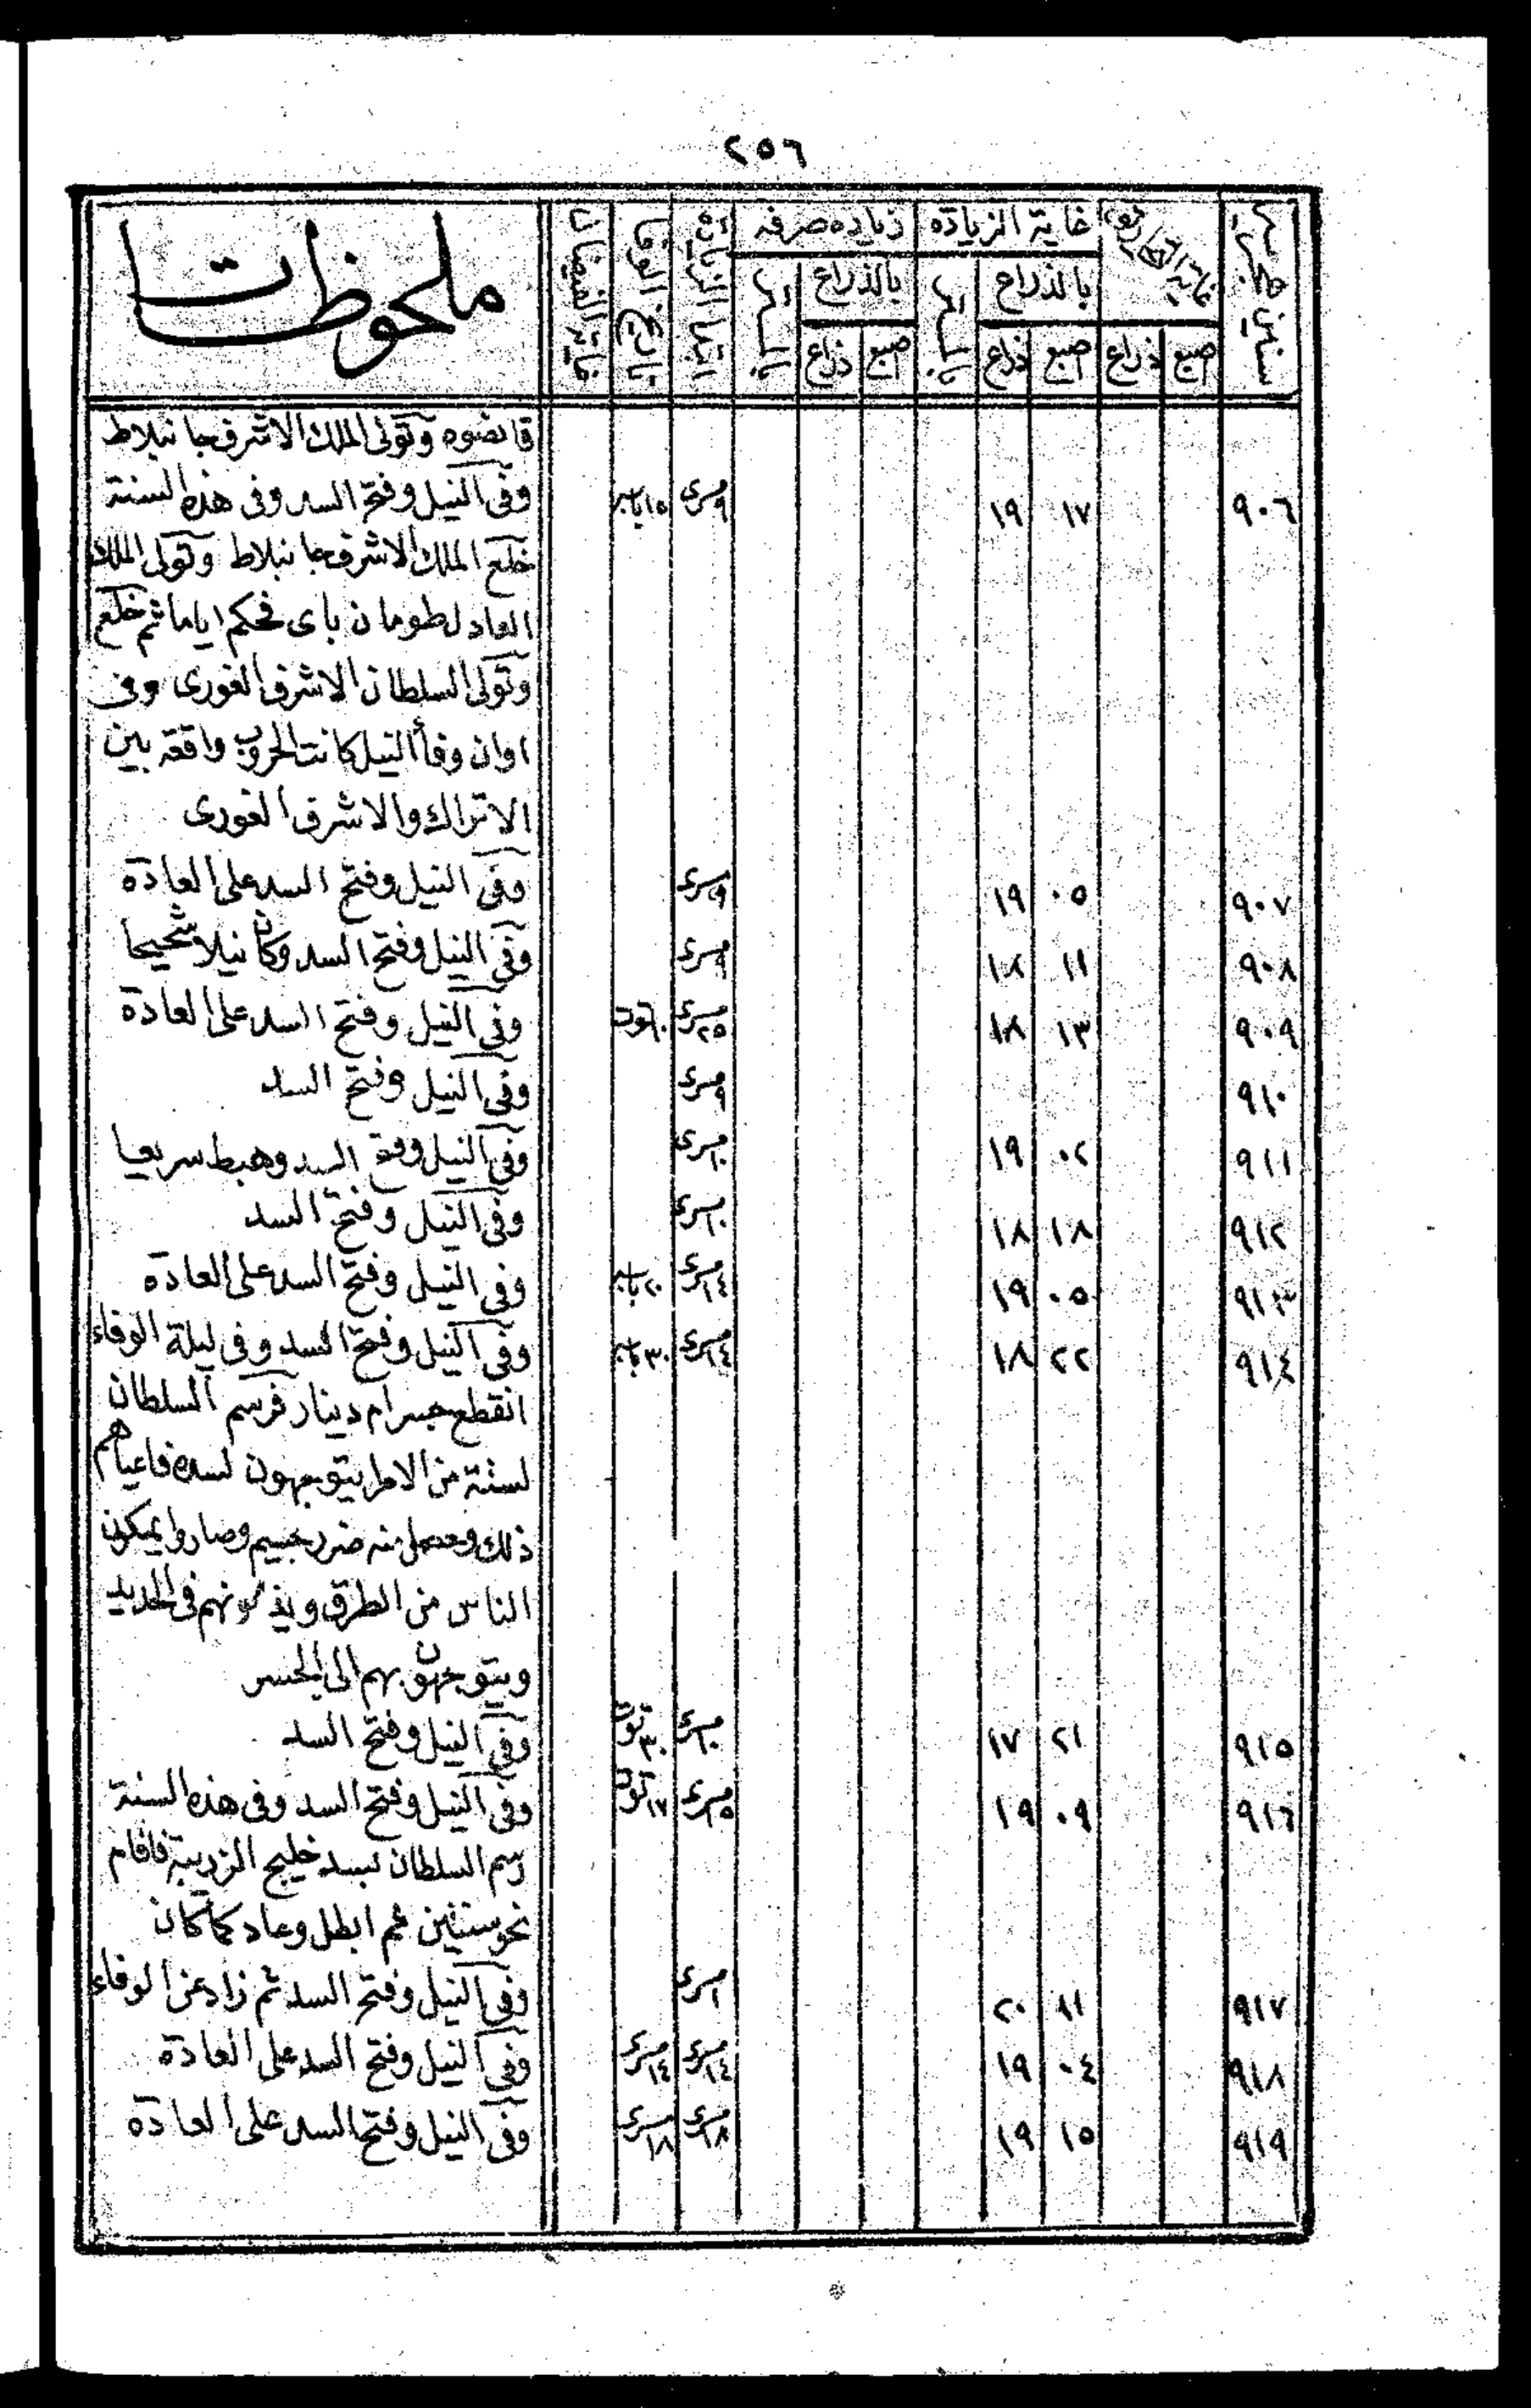 ٢٥٦
غاية الزيادة زياده صرفه
بالذراع بالذراع
صبع ذراع صبع ذراع صبع ذراع
تاريخ الوفا
غاية الفيضان
ملحوظات
قانصوه وتولى الملك الاشرف جا نبلاط
٩٠٦ ١٧ ١٩ ٩ مسرى ١٥ بابه وفى النيل وفتح السد وفى هذه السنة
خلع الملك الاشرف جا نبلاط وتولى الملك
العادل طومان باى فحكم اياما ثم خلع
وتولى السلطان الاشرف الغورى وفى
اوان وفأ النيل كانت الحروب واقعة بين
الاتراك والاشرف الغورى
٩٠٧ ٠٥ ١٩ ٩ مسرى وفى النيل وفتح السد على العادة
٩٠٨ ١١ ١٨ ٩ مسرى وفى النيل وفتح السد وكان نيلا شحيحا
٩٠٩ ١٣ ١٨ ٢٥ مسرى توت وفى النيل وفتح السد على العادة
٩١٠ ٩ مسرى وفى النيل وفتح السد
٩١١ ٠٢ ١٩ ١٠ مسرى وفى النيل وفتح السد وهبط سريعا
٩١٢ ١٨ ١٨ ١٠ مسرى وفى النيل وفتح السد
٩١٣ ٠٥ ١٩ ١٤ مسرى ٢٠ بابه وفى النيل وفتح السد على العادة
٩١٤ ٢٢ ١٨ ١٤ مسرى ٣٠ بابه وفى النيل وفتح السد وفى ليلة الوفاء
انقطع جسر ام دينار فرسم السلطان
لستة من الامرا يتوجهون لسده فاعياهم
ذلك وحصل منه ضرر جسيم وصاروا يمسكون
الناس من الطرق ونهم فى الحديد
ويتوجهون بهم الى الجسر
٩١٥ ٢١ ١٧ ١٠ مسرى ٣٠ توت وفى النيل وفتح السد
٩١٦ ٠٩ ١٩ ١٥ مسرى ١٧ توت وفى النيل وفتح السد وفى هذه السنة
رسم السلطان بسد خليج الزربية فاقام
نحو سنتين ثم ابطل وعاد كما كان
٩١٧ ١١ ٢٠ ١ مسرى وفى النيل وفتح السد ثم زاد عن الوفاء
٩١٨ ٠٤ ١٩ ١٤ مسرى ١٤ مسرى وفى النيل وفتح السد على العادة
٩١٩ ١٥ ١٩ ١٨ مسرى ١٨ مسرى وفى النيل وفتح السد على العادة